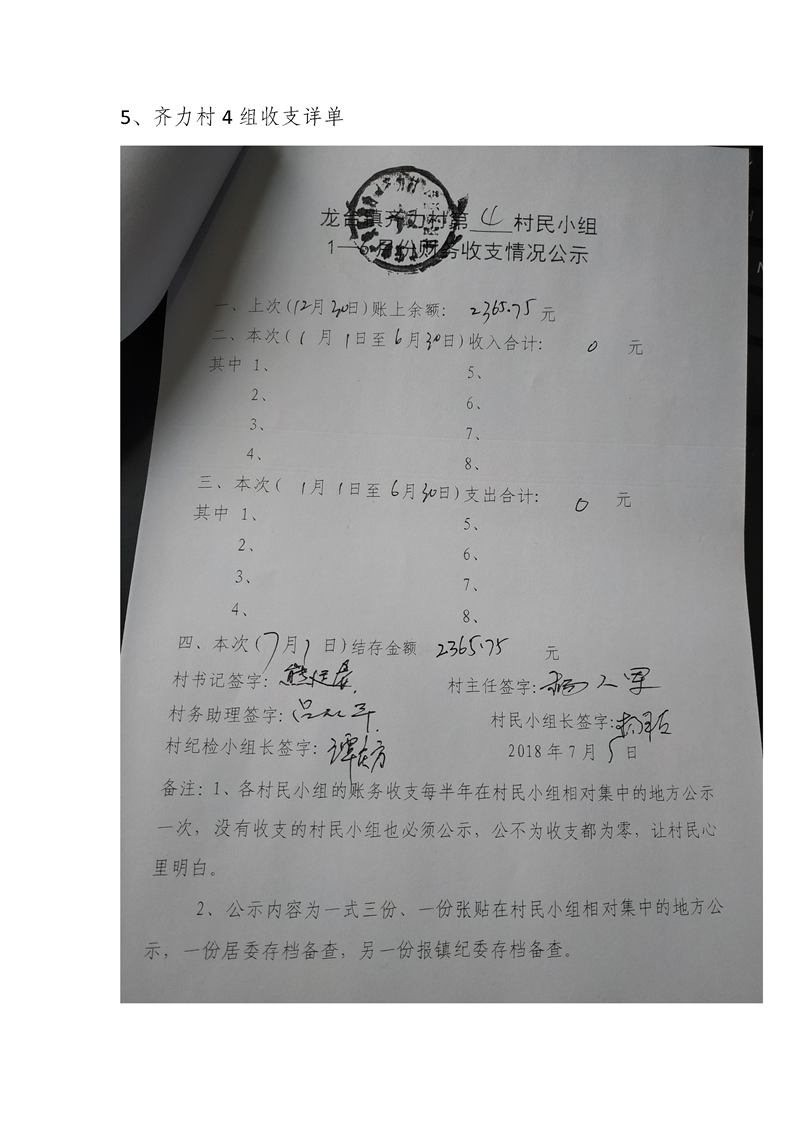 5、齐力村 4 组收支详单
龙台镇齐力村第 4 村民小组
1—6月份财务收支情况公示
一、上次(12月30日)账上余额: 2365.75 元
二、本次(1月1日至6月30日)收入合计: 0 元
其中 1、 5、
2、 6、
3、 7、
4、 8、
三、本次(1月1日至6月30日)支出合计: 0 元
其中 1、 5、
2、 6、
3、 7、
4、 8、
四、本次(7月1日)结存金额 2365.75 元
村书记签字: 村主任签字:
村务助理签字: 村民小组长签字:
村纪检小组长签字: 2018年7月5日
备注:1、各村民小组的账务收支每半年在村民小组相对集中的地方公示
一次,没有收支的村民小组也必须公示,公不为收支都为零,让村民心
里明白。
2、公示内容为一式三份、一份张贴在村民小组相对集中的地方公
示,一份居委存档备查,另一份报镇纪委存档备查。